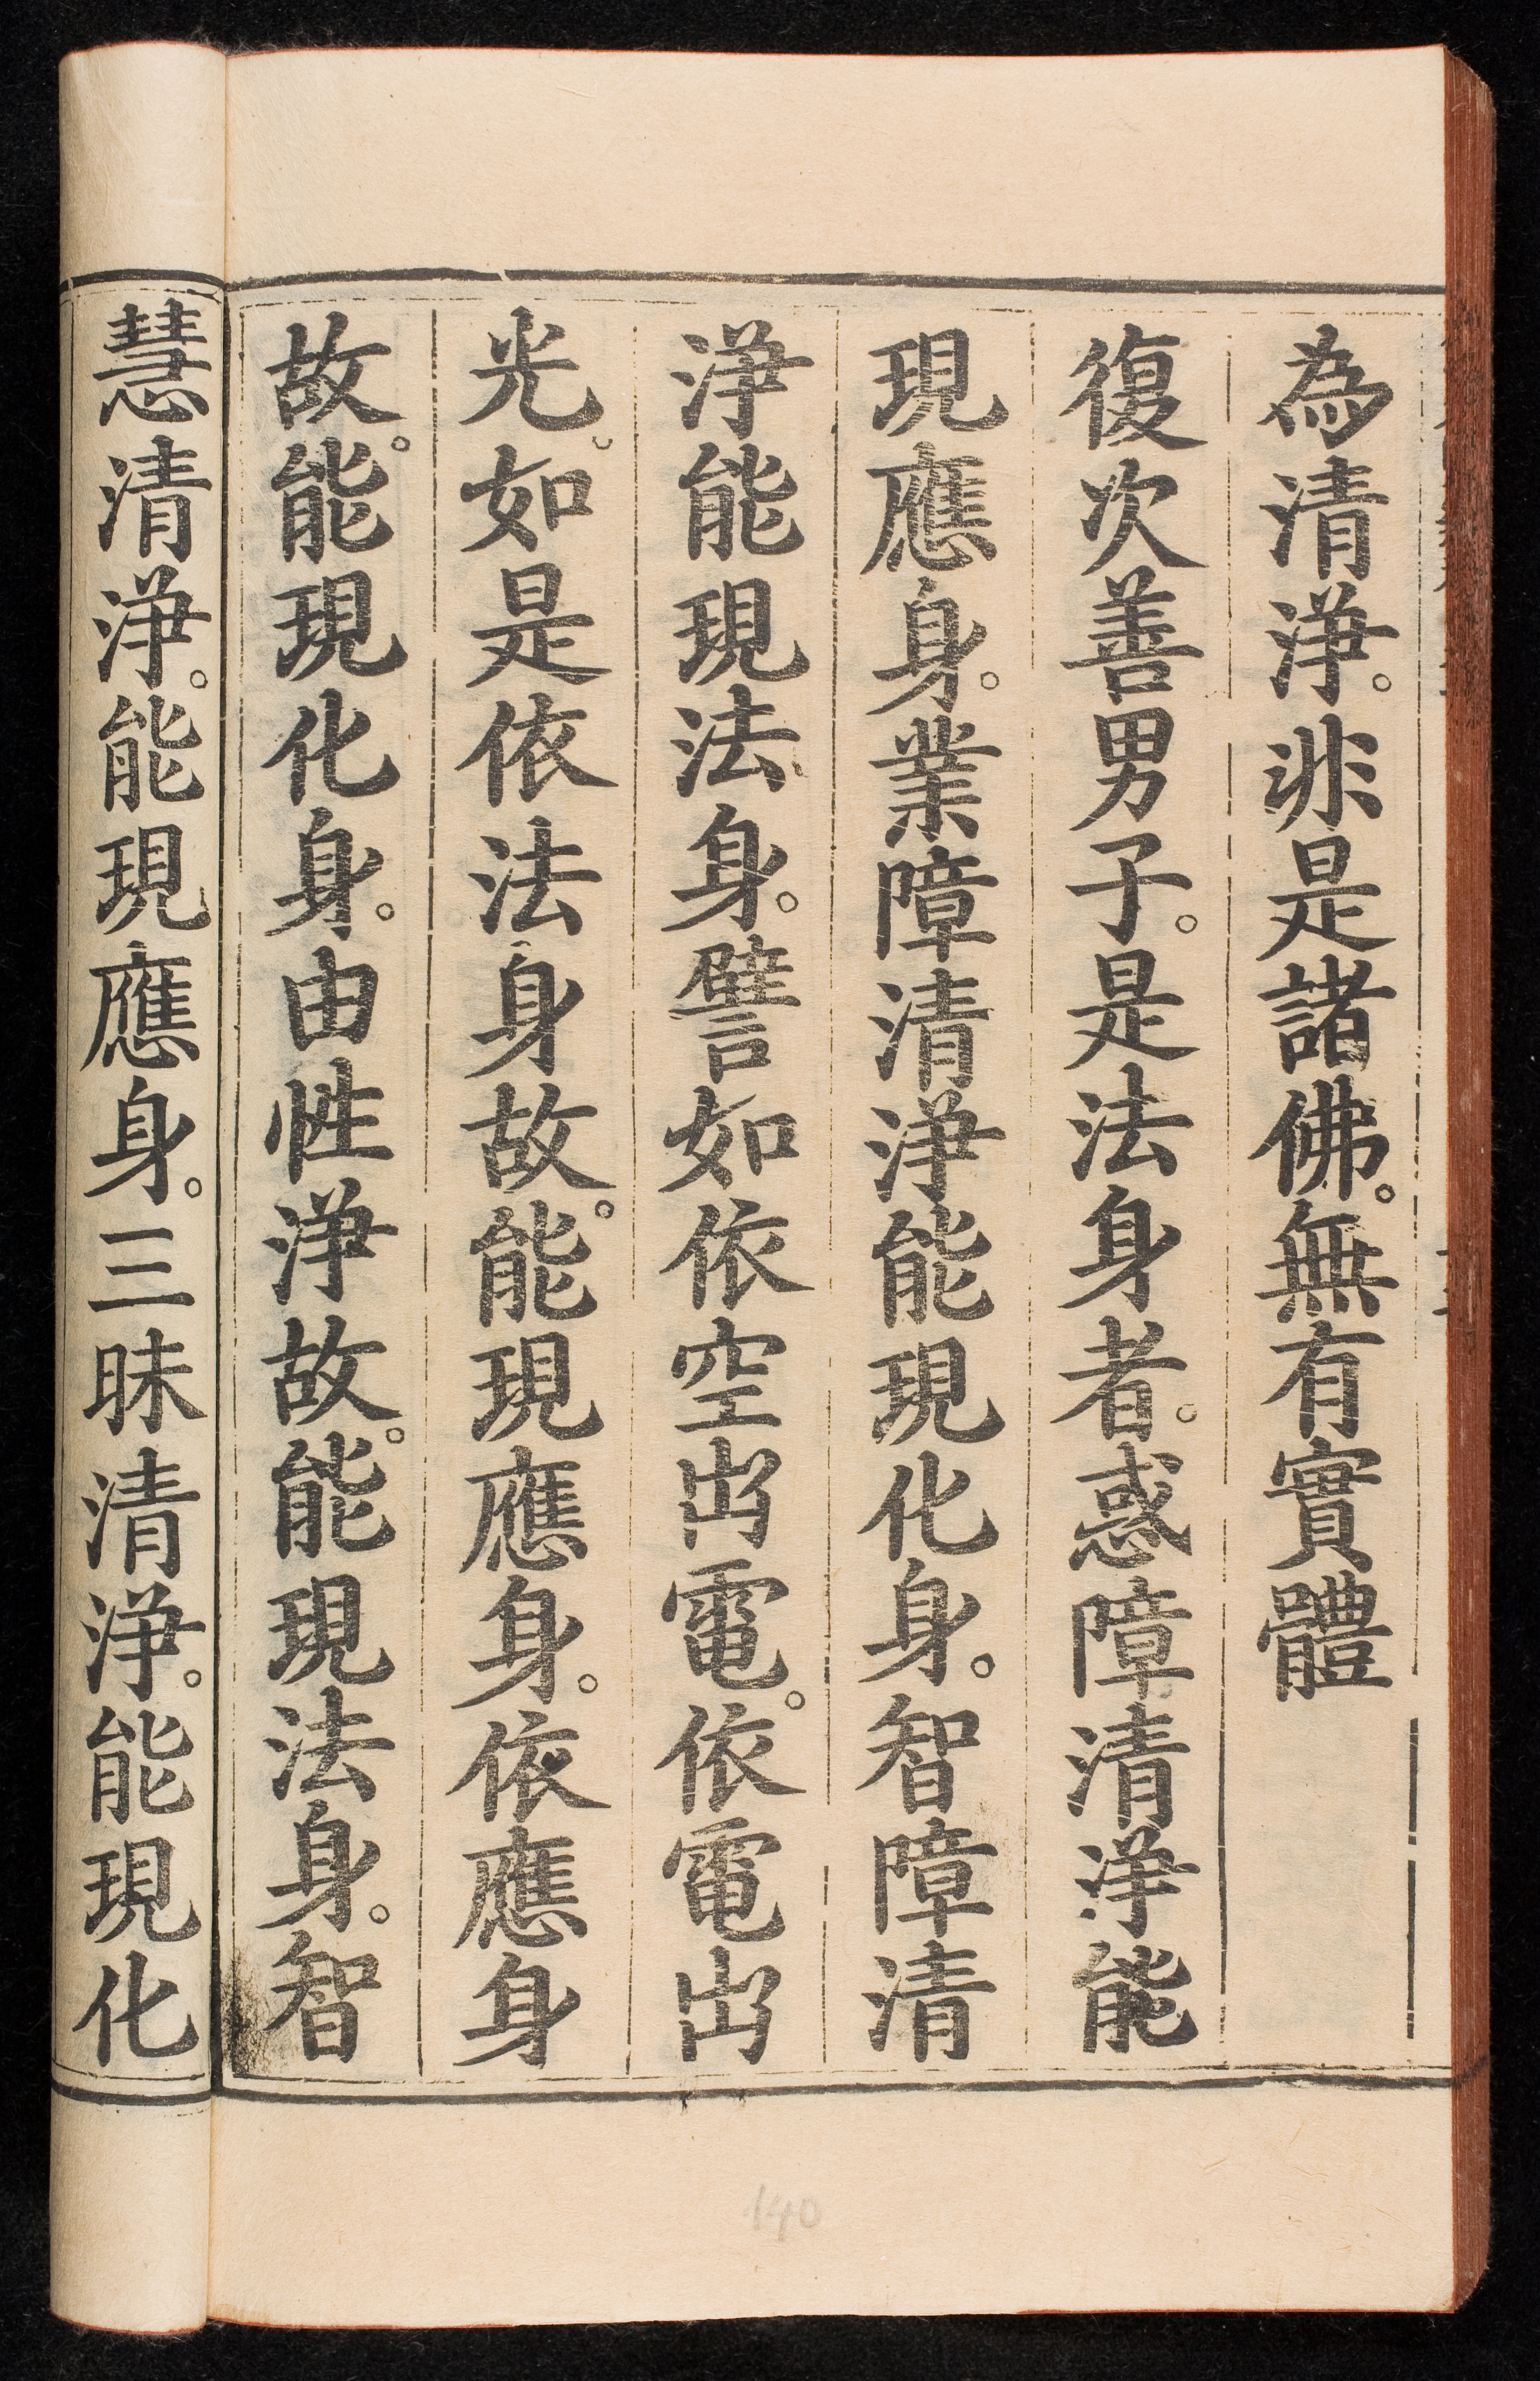 為清淨。非是諸佛。無有實體
復次善男子。是法身者。惑障清淨能
現應身。業障清淨能現化身。智障清
淨能現法身。譬如依空出電。依電出
光。如是依法身故。能現應身。依應身
故。能現化身。由性淨故。能現法身。智
慧清淨。能現應身。三昧清淨。能現化
140